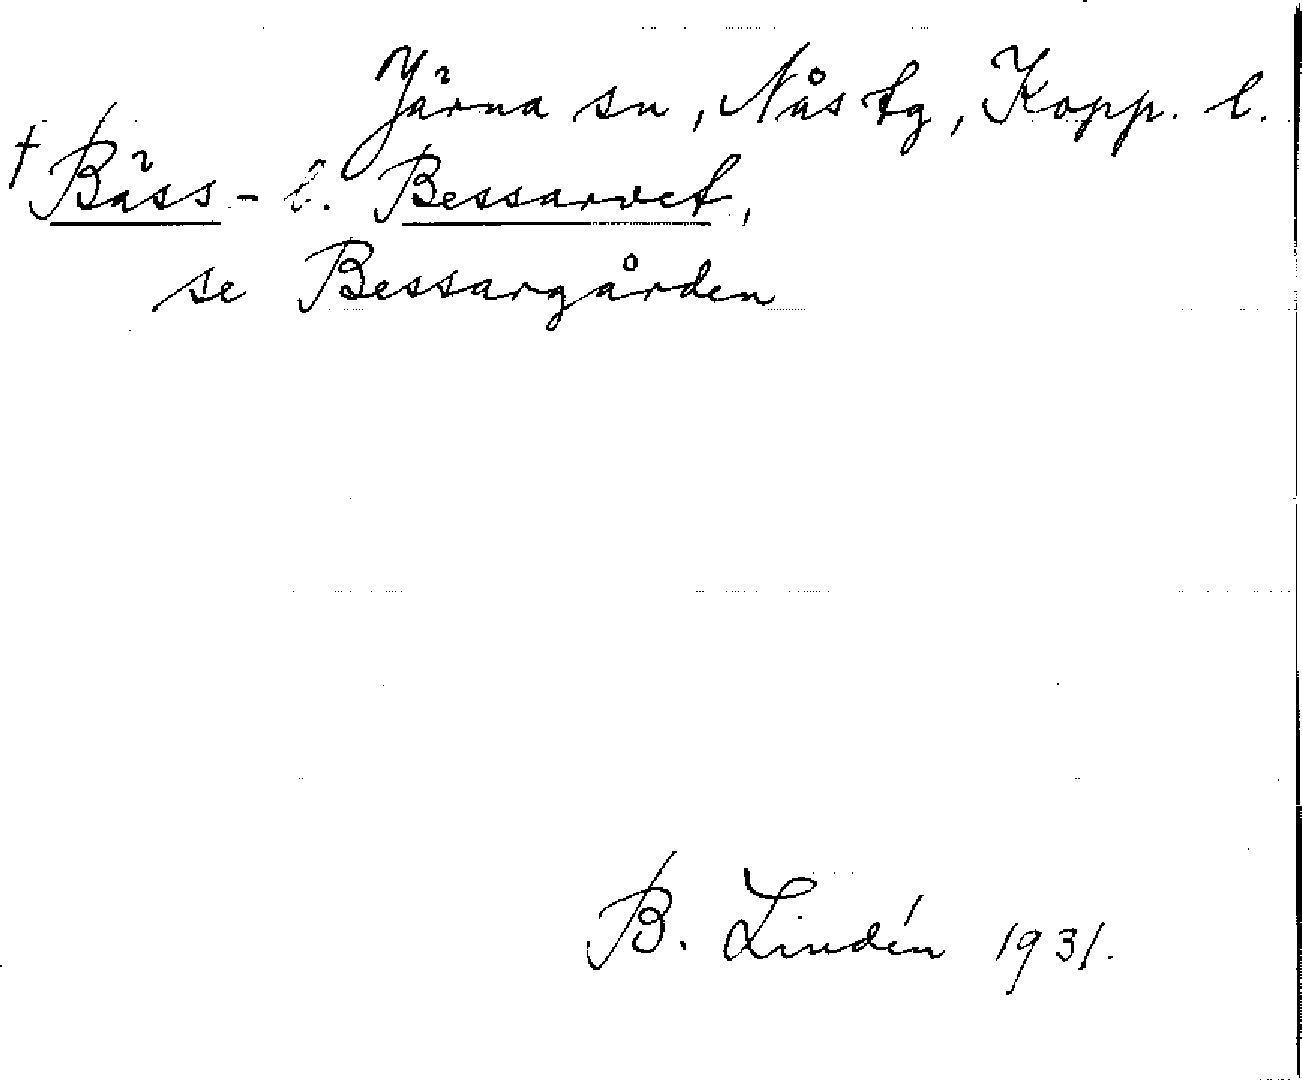 Järna sn, Nås tg, Kopp. l.
† Bäss- l. Bessarvet,
se Bessargården
B. Lindén 1931.